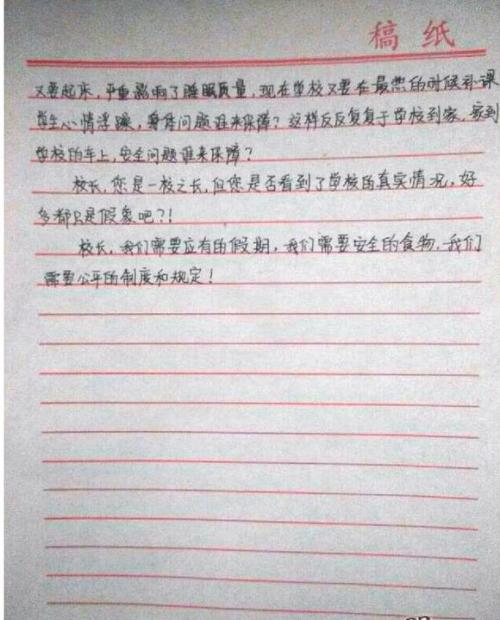 稿纸
又要起床，严重影响了睡眠质量，现在学校又要在最热的时候补课
学生心情浮躁，身体问题谁来保障？这样反反复复于学校到家，家到
学校的车上，安全问题谁来保障？
校长，您是一校之长，但您是否看到了学校的真实情况，好
多都只是假象吧？！
校长，我们需要应有的假期，我们需要安全的食物，我们
需要公平的制度和规定！